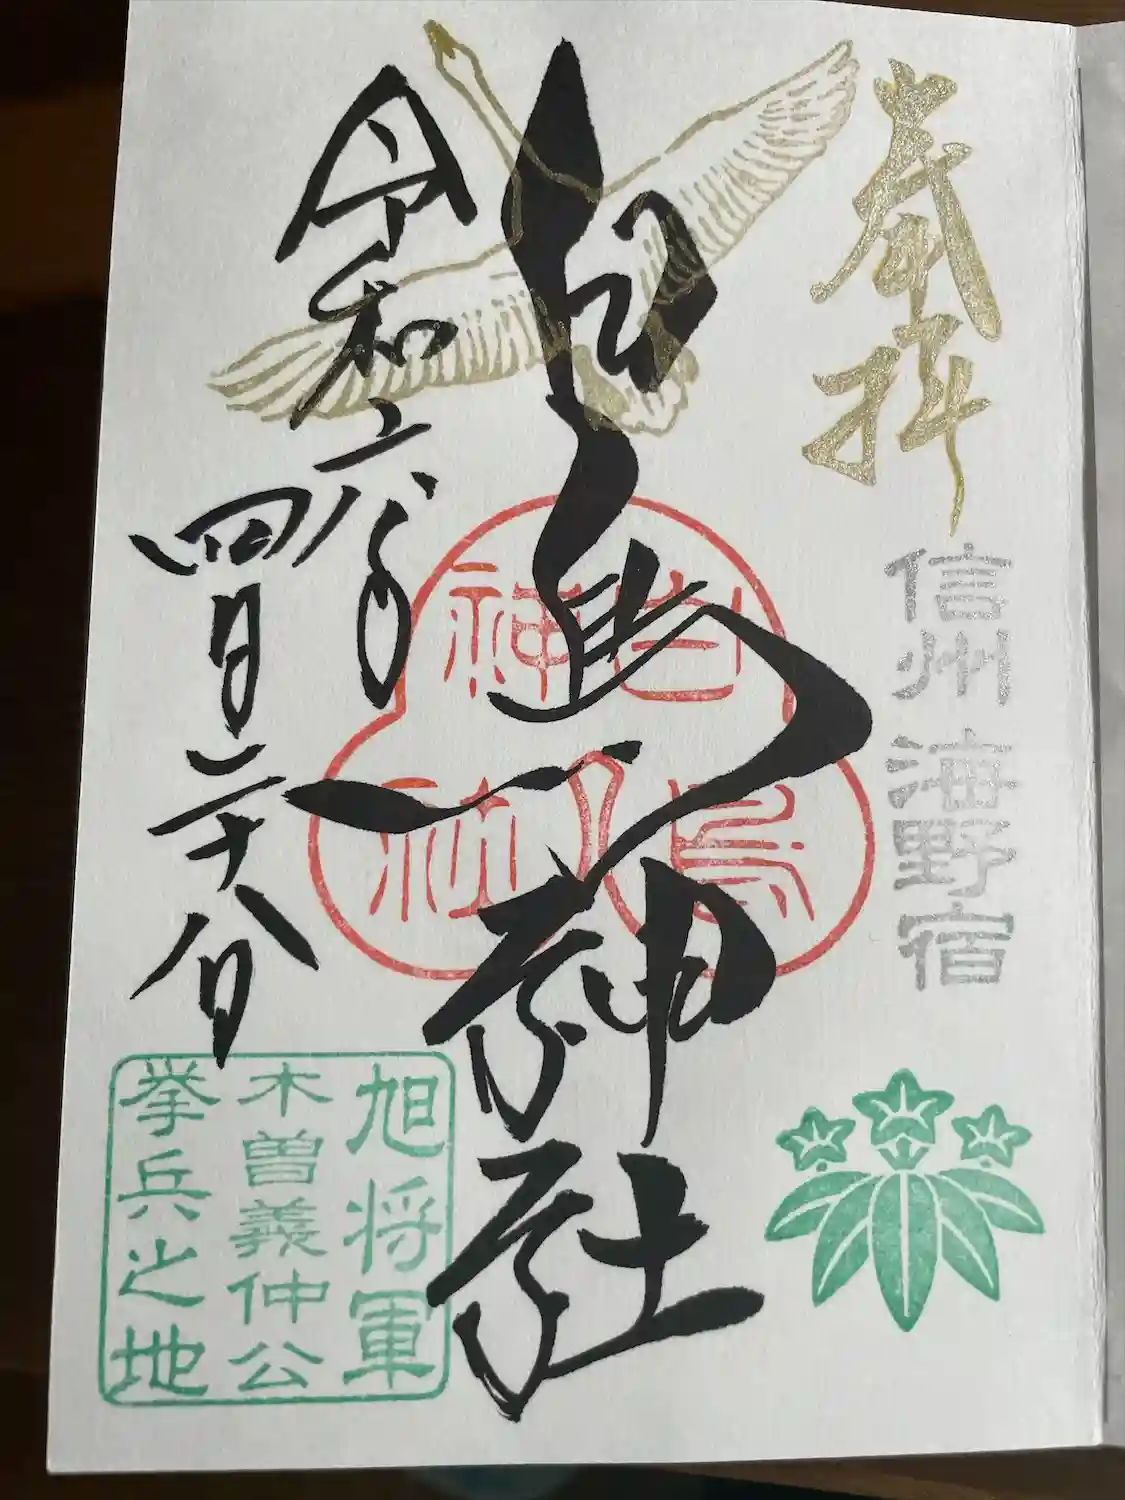 奉拝
信州 海野宿
白鳥神社
白鳥神社
令和六年
四月二十八日
旭将軍
木曽義仲公
挙兵之地